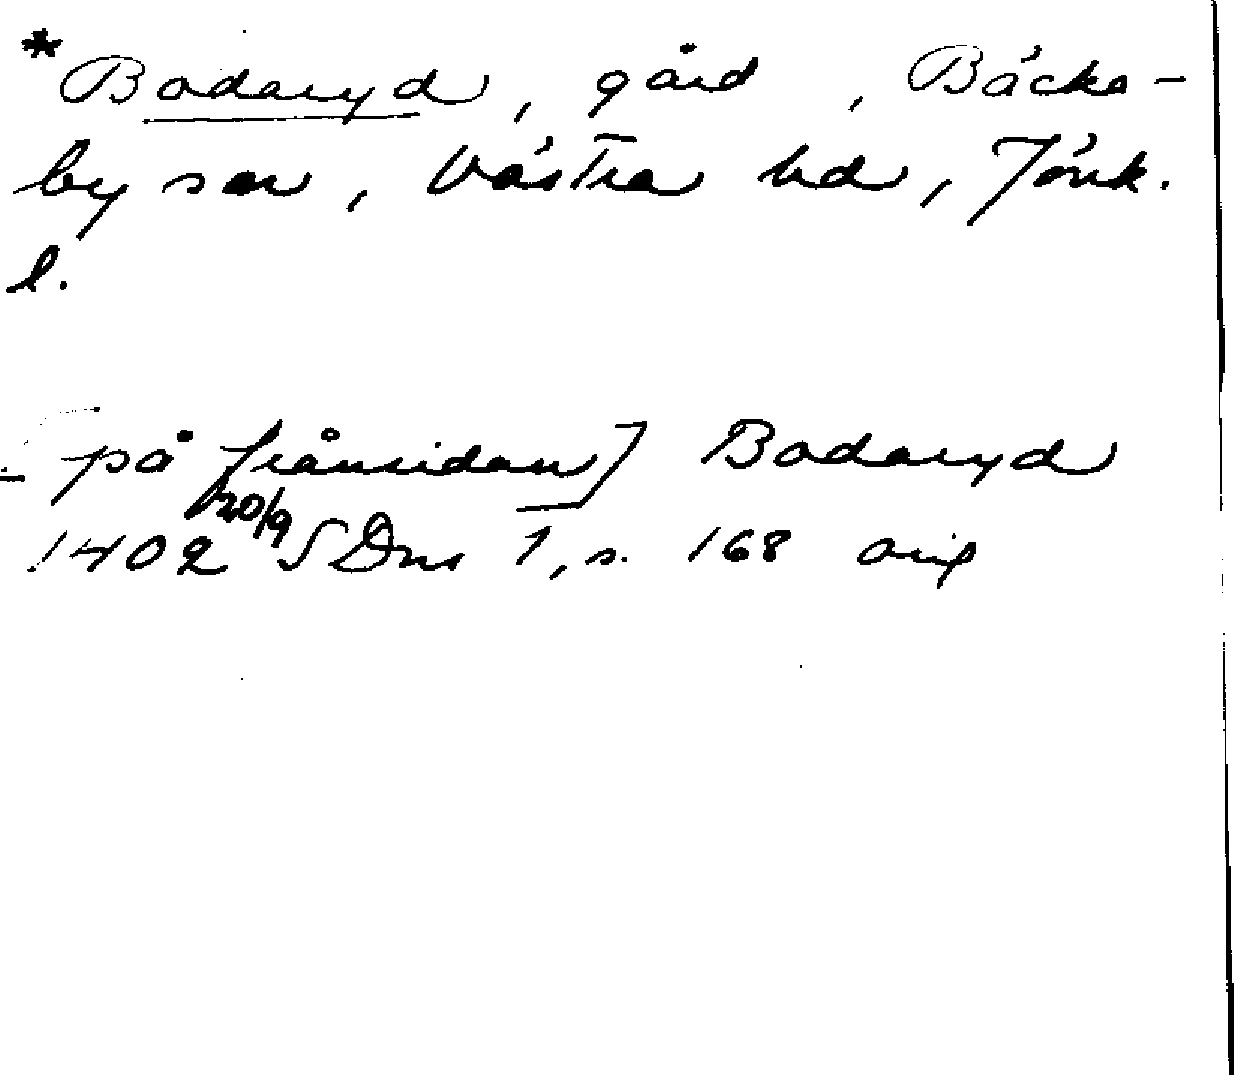 *Bodaryd, gård, Bäcka-
by sn, Västra hd, Jönk.
l.
[på frånsidan] Bodaryd
1402 20/9 SDns 1, s. 168 orig